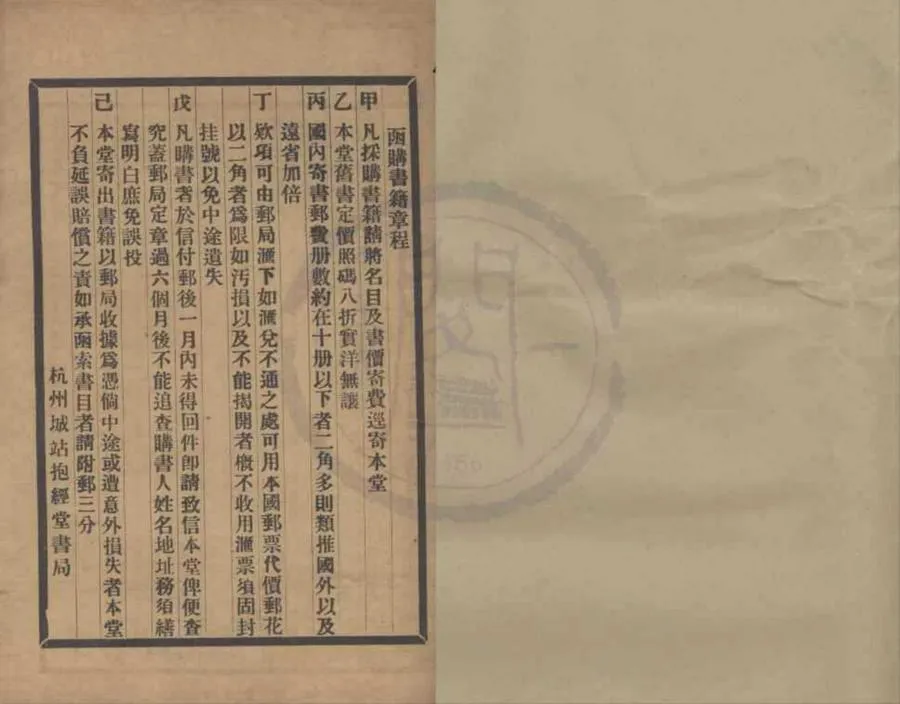 函購書籍章程
甲　凡採購書籍請將名目及書價寄費逕寄本堂
乙　本堂舊書定價照碼八折實洋無讓
丙　國內寄書郵費册數約在十册以下者二角多則類推國外以及
遠省加倍
丁　欵項可由郵局滙下如滙兌不通之處可用本國郵票代價郵花
以二角者爲限如汚損以及不能揭開者概不收用滙票須固封
挂號以免中途遺失
戊　凡購書者於信付郵後一月內未得回件卽請致信本堂俾便查
究蓋郵局定章過六個月後不能追查購書人姓名地址務須繕
寫明白庶免誤投
己　本堂寄出書籍以郵局收據爲憑倘中途或遭意外損失者本堂
不負延誤賠償之責如承函索書目者請附郵三分
杭州城站抱經堂書局